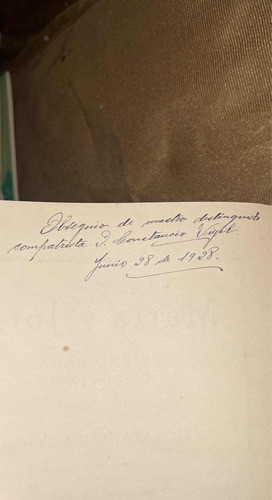 Obsequio de nuestro distinguido
compatriota D. Constancio Vigil.
Junio 28 de 1928.